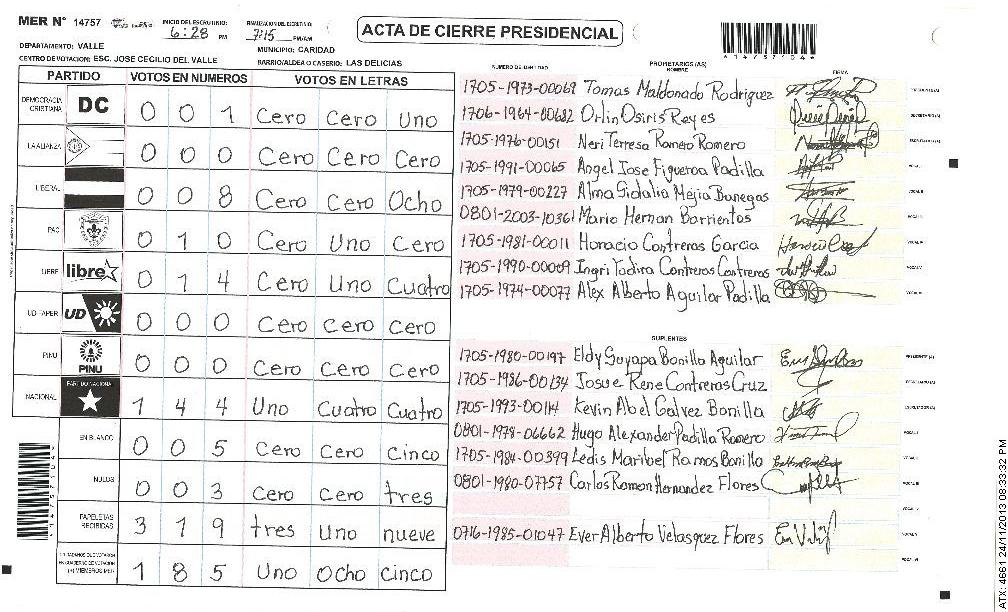 MER N° 14757
INICIO DEL ESCRUTINIO: 6:28 PM
FINALIZACION DEL ESCRUTINIO: 7:15 PM/AM
ACTA DE CIERRE PRESIDENCIAL
*14757104*
DEPARTAMENTO: VALLE
MUNICIPIO: CARIDAD
CENTRO DE VOTACION: ESC. JOSE CECILIO DEL VALLE
BARRIO/ALDEA O CASERIO: LAS DELICIAS
PARTIDO VOTOS EN NUMEROS VOTOS EN LETRAS
DEMOCRACIA CRISTIANA DC 0 0 1 Cero Cero Uno
LA ALIANZA 0 0 0 Cero Cero Cero
LIBERAL 0 0 8 Cero Cero Ocho
PAC 0 1 0 Cero Uno Cero
LIBRE libre 0 1 4 Cero Uno Cuatro
UD-FAPER UD 0 0 0 Cero Cero Cero
PINU PINU 0 0 0 Cero Cero Cero
NACIONAL PARTIDO NACIONAL 1 4 4 Uno Cuatro Cuatro
EN BLANCO 0 0 5 Cero Cero Cinco
NULOS 0 0 3 Cero Cero tres
PAPELETAS RECIBIDAS 3 1 9 tres Uno nueve
CIUDADANOS QUE VOTARON EN CUADERNO DE VOTACION (+) MIEMBROS MER 1 8 5 Uno Ocho Cinco
NUMERO DE IDENTIDAD PROPIETARIOS (AS) NOMBRE FIRMA
1705-1973-00069 Tomas Maldonado Rodriguez PRESIDENTE(A)
1706-1964-00682 Orlin Osiris Reyes SECRETARIO(A)
1705-1976-00151 Neri Terresa Romero Romero ESCRUTADOR(A)
1705-1991-00065 Angel Jose Figueroa Padilla VOCAL I
1705-1979-00227 Alma Sidalia Mejia Banegas VOCAL II
0801-2003-10361 Mario Hernan Barrientos VOCAL III
1705-1981-00011 Horacio Contreras Garcia VOCAL IV
1705-1990-00009 Ingri Yodira Contreras Contreras VOCAL V
1705-1974-00077 Alex Alberto Aguilar Padilla VOCAL VI
SUPLENTES
1705-1980-00197 Eldy Suyapa Bonilla Aguilar PRESIDENTE (A)
1705-1986-00134 Josue Rene Contreras Cruz SECRETARIO (A)
1705-1993-00114 Kevin Abel Galvez Bonilla ESCRUTADOR(A)
0801-1978-06662 Hugo Alexander Padilla Romero VOCAL I
1705-1984-00399 Ledis Maribel Ramos Bonilla VOCAL II
0801-1980-07757 Carlos Ramon Hernandez Flores VOCAL III
VOCAL IV
0716-1985-01047 Ever Alberto Velasquez Flores VOCAL V
VOCAL VI
*14757104*
ATX: 4661 24/11/2013 08:33:32 PM